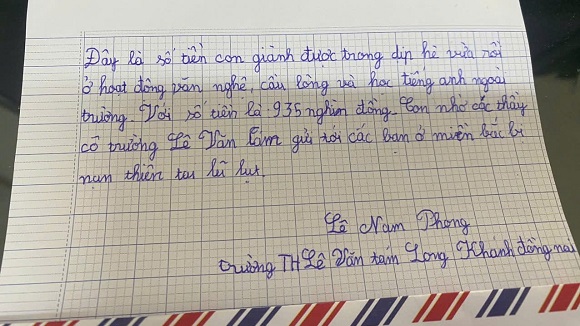 Đây là số tiền con giành được trong dịp hè vừa rồi
ở hoạt động văn nghệ, cầu lông và học tiếng anh ngoài
trường. Với số tiền là 935 nghìn đồng. Con nhờ các thầy
cô trường Lê Văn Tám gửi tới các bạn ở miền bắc bị
nạn thiên tai lũ lụt.
Lê Nam Phong
trường TH Lê Văn tám Long Khánh đồng nai